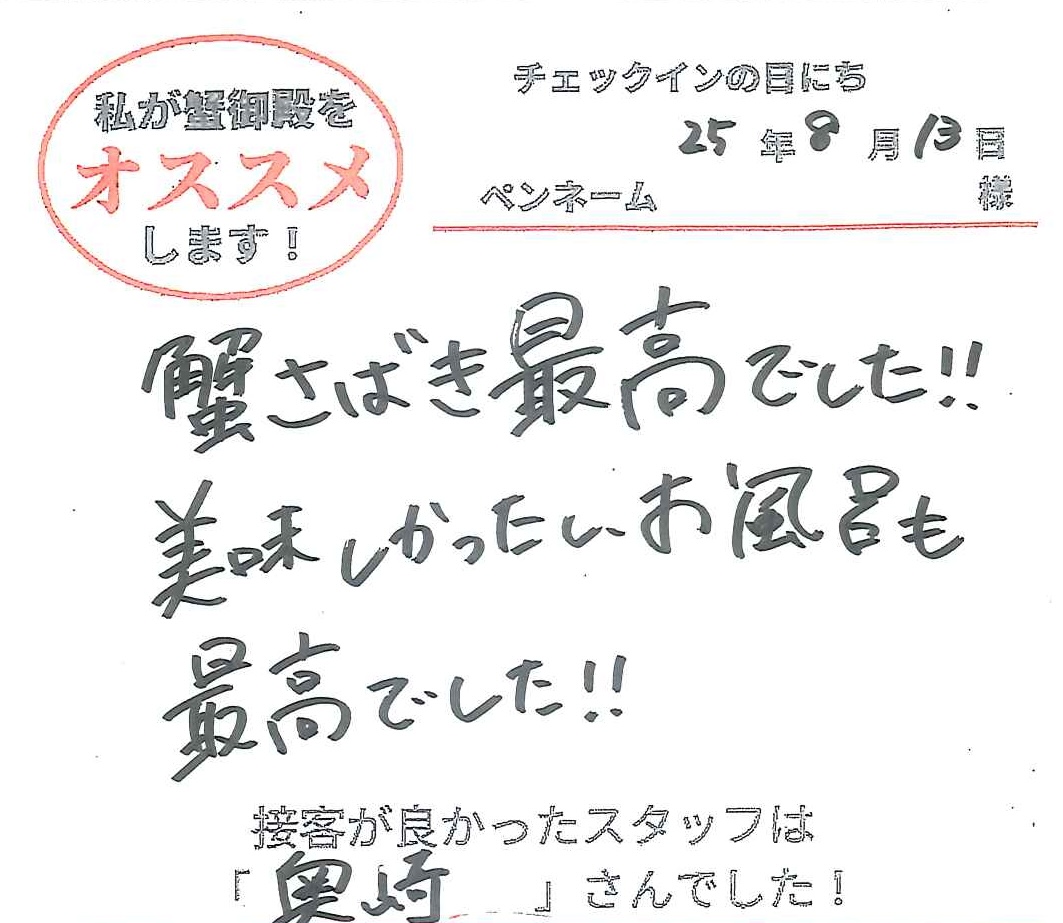 私が蟹御殿を
オススメ
します！
チェックインの日にち
25年8月13日
ペンネーム 様
蟹さばき最高でした!!
美味しかったし、お風呂も
最高でした!!
接客が良かったスタッフは
「奥崎」さんでした！